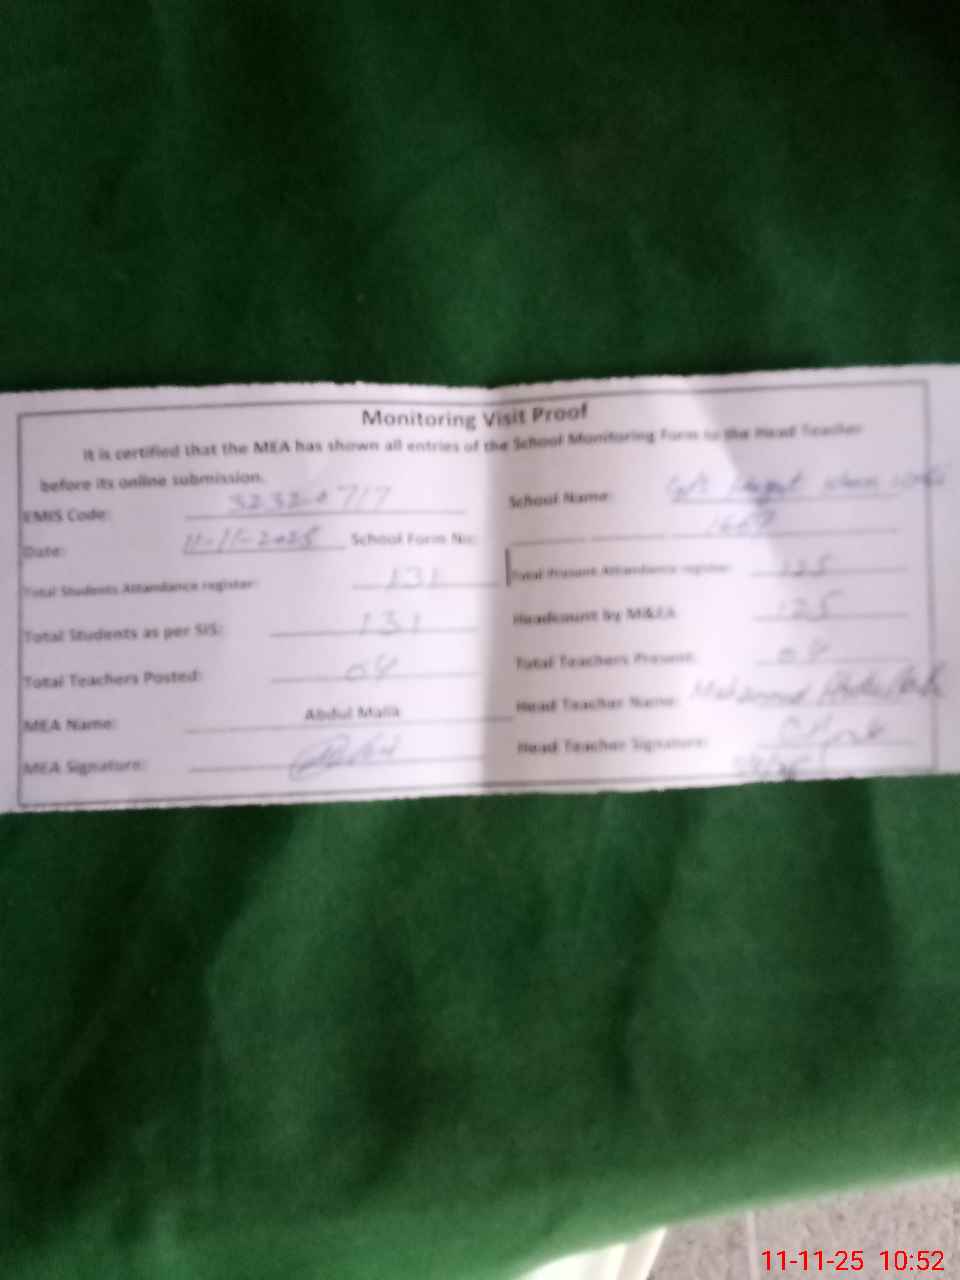 Monitoring Visit Proof
It is certified that the MEA has shown all entries of the School Monitoring Form to the Head Teacher
before its online submission.
EMIS Code: School Name:
Date: 11-11-2025 School Form No:
Total Students Attandance register: 131 Total Present Attandance register: 125
Total Students as per SIS: 131 Headcount by M&EA 125
Total Teachers Posted: Total Teachers Present:
MEA Name: Abdul Malik Head Teacher Name: Muhammad
MEA Signature: Head Teacher Signature:
11-11-25 10:52